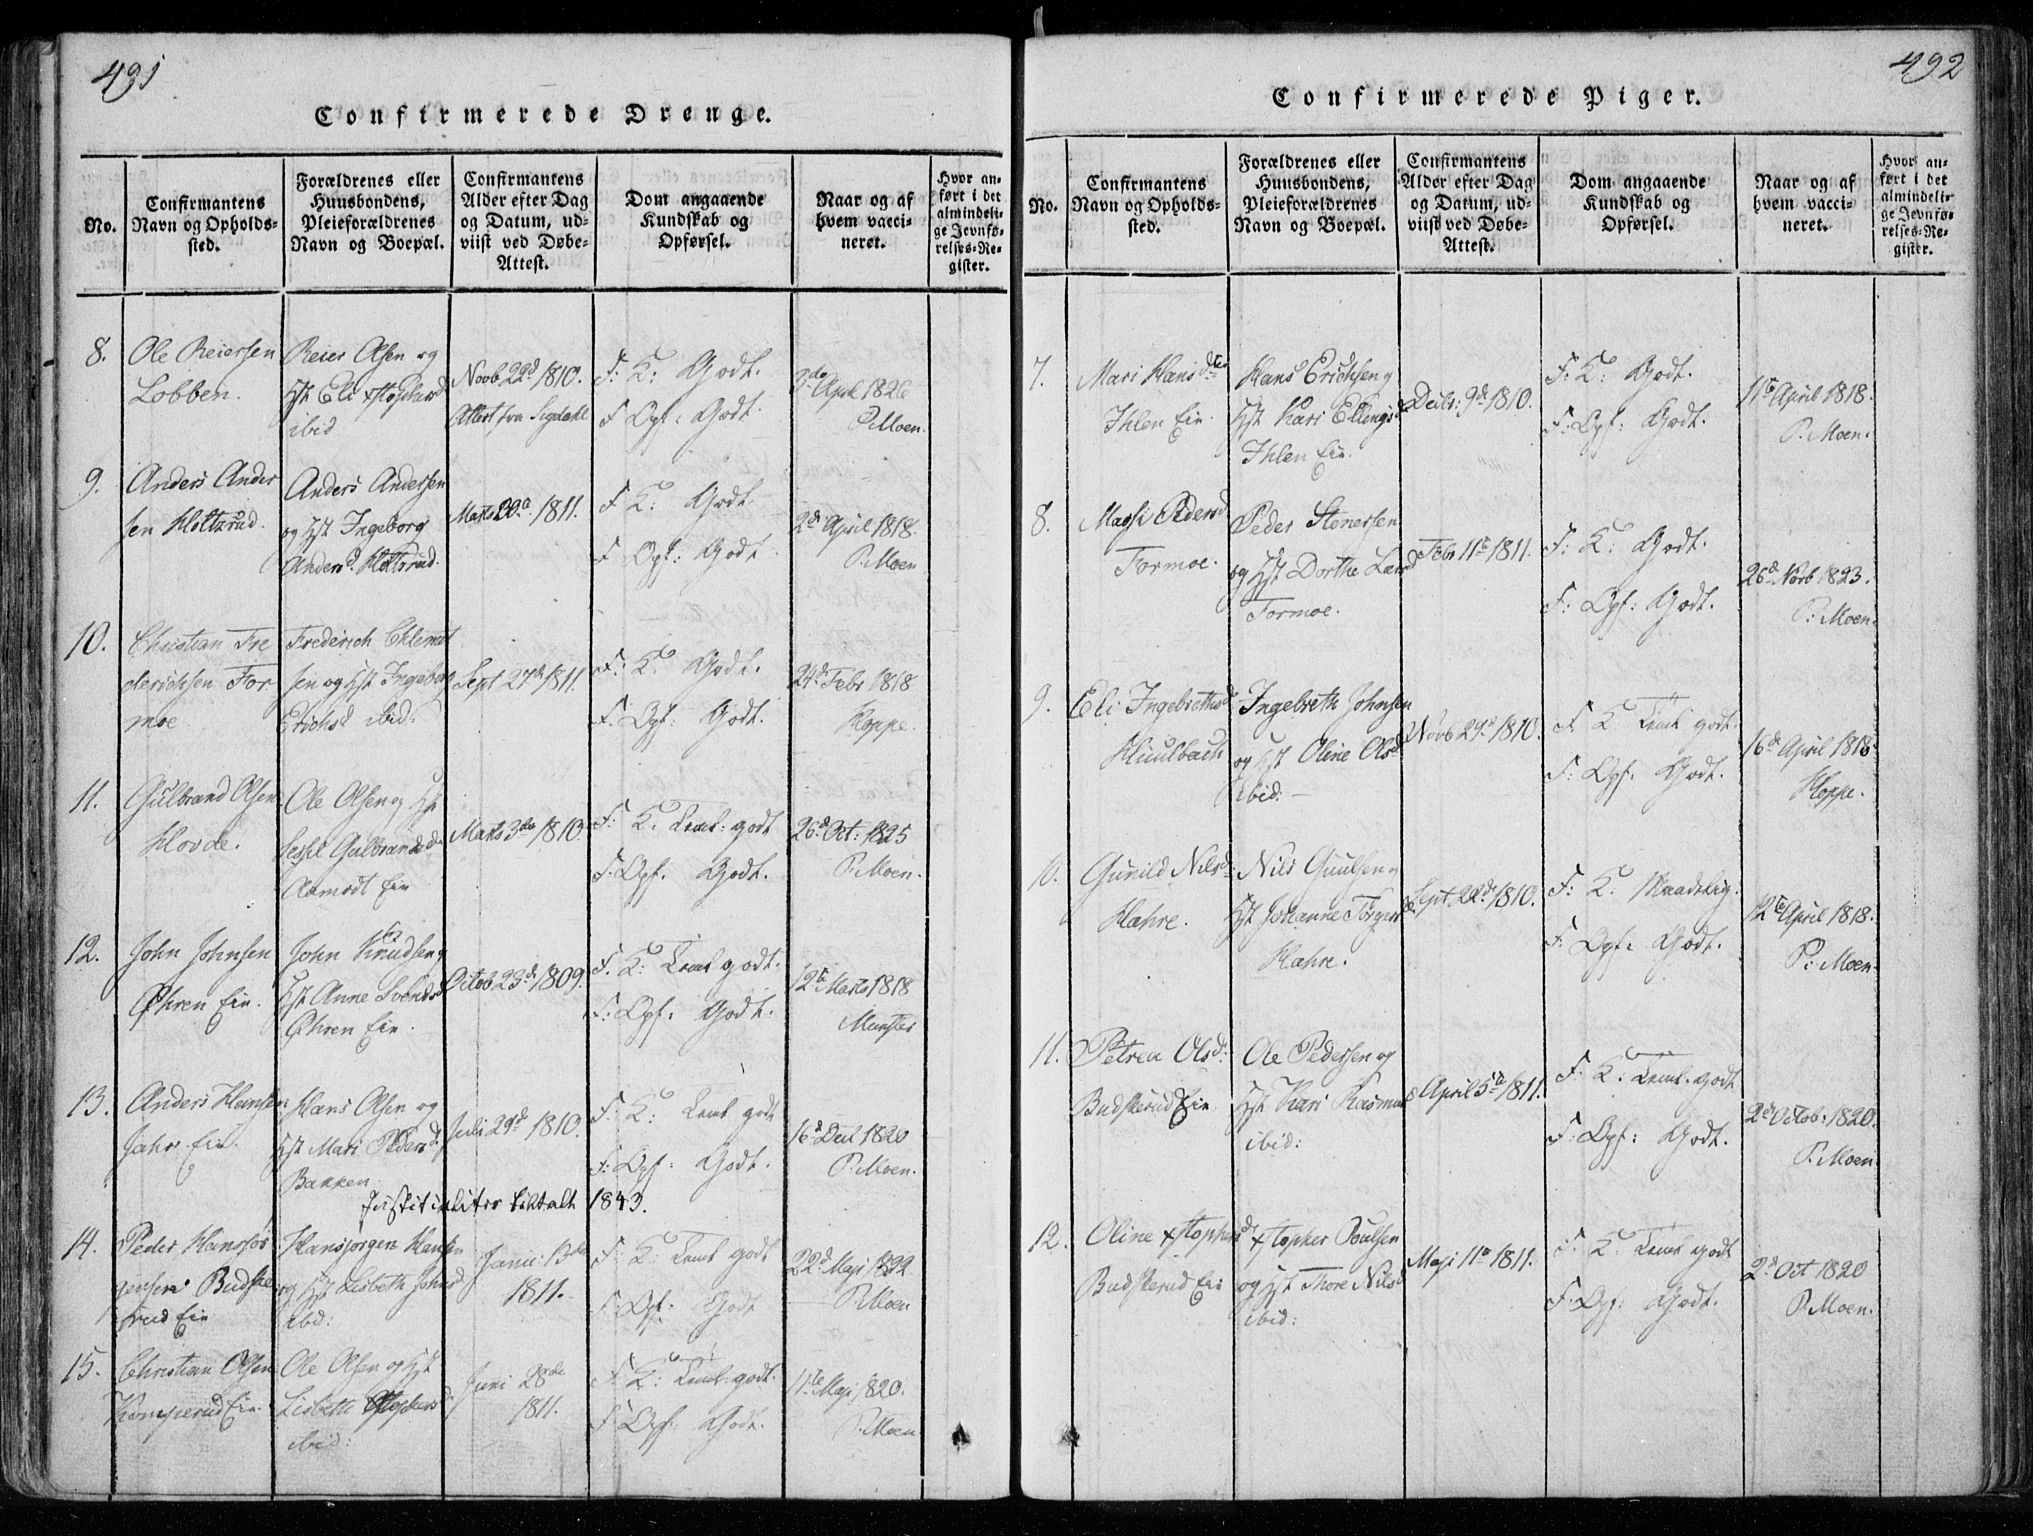 491
Confirmerede Drenge.
No.
Confirmantens
Navn og Opholds-
sted.
Forældrenes eller
Huusbondens,
Pleieforældrenes
Navn og Boepæl.
Confirmantens
Alder efter Dag
og Datum, ud-
viist ved Døbe-
Attest.
Dom angaaende
Kundskab og
Opførsel.
Naar og af
hvem vacci-
neret.
Hvor an-
ført i det
almindeli-
ge Jevnfø-
relses-Re-
gister.
8.
Ole Reiersen
Lobben.
Reier Olsen og
Hst Eli Xstophersd
ibid
Novb 22d 1810.
Attest fra Sigdahl
F: K: Godt.
F Opf: Godt.
3de April 1826
P. Moen.
9.
Anders Ander
sen Holtzrud.
Anders Andersen
og Hst Ingeborg
Andersd. Holtsrud.
Marts 1811.
F K: Godt
F. Opf: Godt
2d April 1818.
P. Moen
10.
Christian Fre
derichsen For
moe
Frederich Chlemet
sen og Hst Ingeborg
Erichsd ibid.
Sept 27d 1811.
F: K: Godt.
F. Opf: Godt.
24d Febr 1818
Hoppe.
11.
Gulbrand Olsen
Hovde.
Ole Olsen og Hst
Gulbrandsd
Aamodt Eie
Marts 3de 1810.
F: K: Teml: godt
F. Opf. Godt.
26d Oct: 1825
P. Moen.
12.
John Johnsen
Øhren Eie.
John Knudsen og
Hst Anne Svendsd
Øhren Eie.
Octob 23d 1809.
F. K: Teml godt.
F: Opf: Godt.
12te Marts 1818
Munster
13.
Anders Hansen
Jahr Eie.
Hans Olsen og
Hst Mari Pedersd.
Bakken.
Juli 29d 1810.
F: K: Teml godt
F: Opf: Godt.
16d Decb 1820
P. Moen.
1843.
14.
Peder Hansjør
gensen Budske
rud Eie
Hansjørgen Hansen
og Hst Lisbeth Johnsd
ibd:
Janu: 13de
1811.
F: K: Teml godt
F. Opf. Godt
22d Maji 1822
P. Moen
15.
Christian Olsen
Komperud Eie.
Ole Olsen og Hst
Lisbeth Xstophersd
ibid:
Juni 28de
1811.
F. K: Teml: godt.
F Opf: Godt.
11te Maji 1820.
P. Moen
492
Confirmerede Piger.
No.
Confirmantens
Navn og Opholds-
sted.
Forældrenes eller
Huusbondens,
Pleieforældrenes
Navn og Boepæl.
Confirmantens
Alder efter Dag
og Datum, ud-
viist ved Døbe-
Attest.
Dom angaaende
Kundskab og
Opførsel.
Naar og af
hvem vacci-
neret.
Hvor an-
ført i det
almindeli-
ge Jevnfø-
relses-Re-
gister.
7.
Mari Hansdtr
Ihlen Eie.
Hans Erichsen og
Hst Kari Ellingsd
Ihlen Eie.
Decbr: 9d 1810.
F: K: Godt.
F: Opf: Godt.
11te April 1818.
P. Moen.
8.
Massi Pedersd
Formoe.
Peder Stenersen
og Hst Dorthe Larsd
Formoe.
Febr 11te 1811.
F: K: Godt.
F: Opf: Godt.
26d Novb 1823.
P: Moen.
9.
Eli Ingebrethsd
Huulbach
Ingebreth Johnsen
og Hst Oline Olsd
ibid: —
Novb 29d 1810.
F. K Teml godt.
F: Opf: Godt.
16d April 1818.
Hoppe.
10.
Gunild Nilsd:
Hahre.
Nils Guulsen og
Hst Johanne Torgersd
Hahre.
Sept. 22d 1810.
F: K: Maadelig.
F. Opf: Godt.
12te April 1818.
P: Moen.
11.
Petrea Olsd:
Budskerud Eie.
Ole Pedersen og
Hst Kari Rasmusd
ibid:
April 5te 1811.
F: K: Teml. godt
F. Opf: Godt.
2d Octob: 1820.
P. Moen.
12.
Oline Xstophersd
Budskerud Eie
Xstopher Poulsen
og Hst Thore Nilsd
ibid:
Maji 11te 1811.
F. K: Teml godt
F. Opf: Godt.
2d Oct 1820
P. Moen.